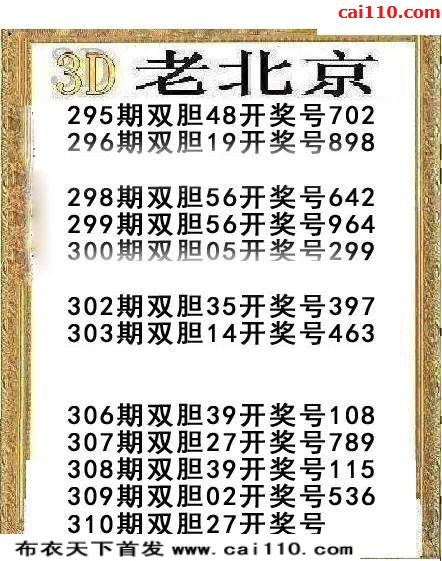 cai110.com
3D 老北京
295期双胆48开奖号702
296期双胆19开奖号898
298期双胆56开奖号642
299期双胆56开奖号964
300期双胆05开奖号299
302期双胆35开奖号397
303期双胆14开奖号463
306期双胆39开奖号108
307期双胆27开奖号789
308期双胆39开奖号115
309期双胆02开奖号536
310期双胆27开奖号
布衣天下首发 www.cai110.com